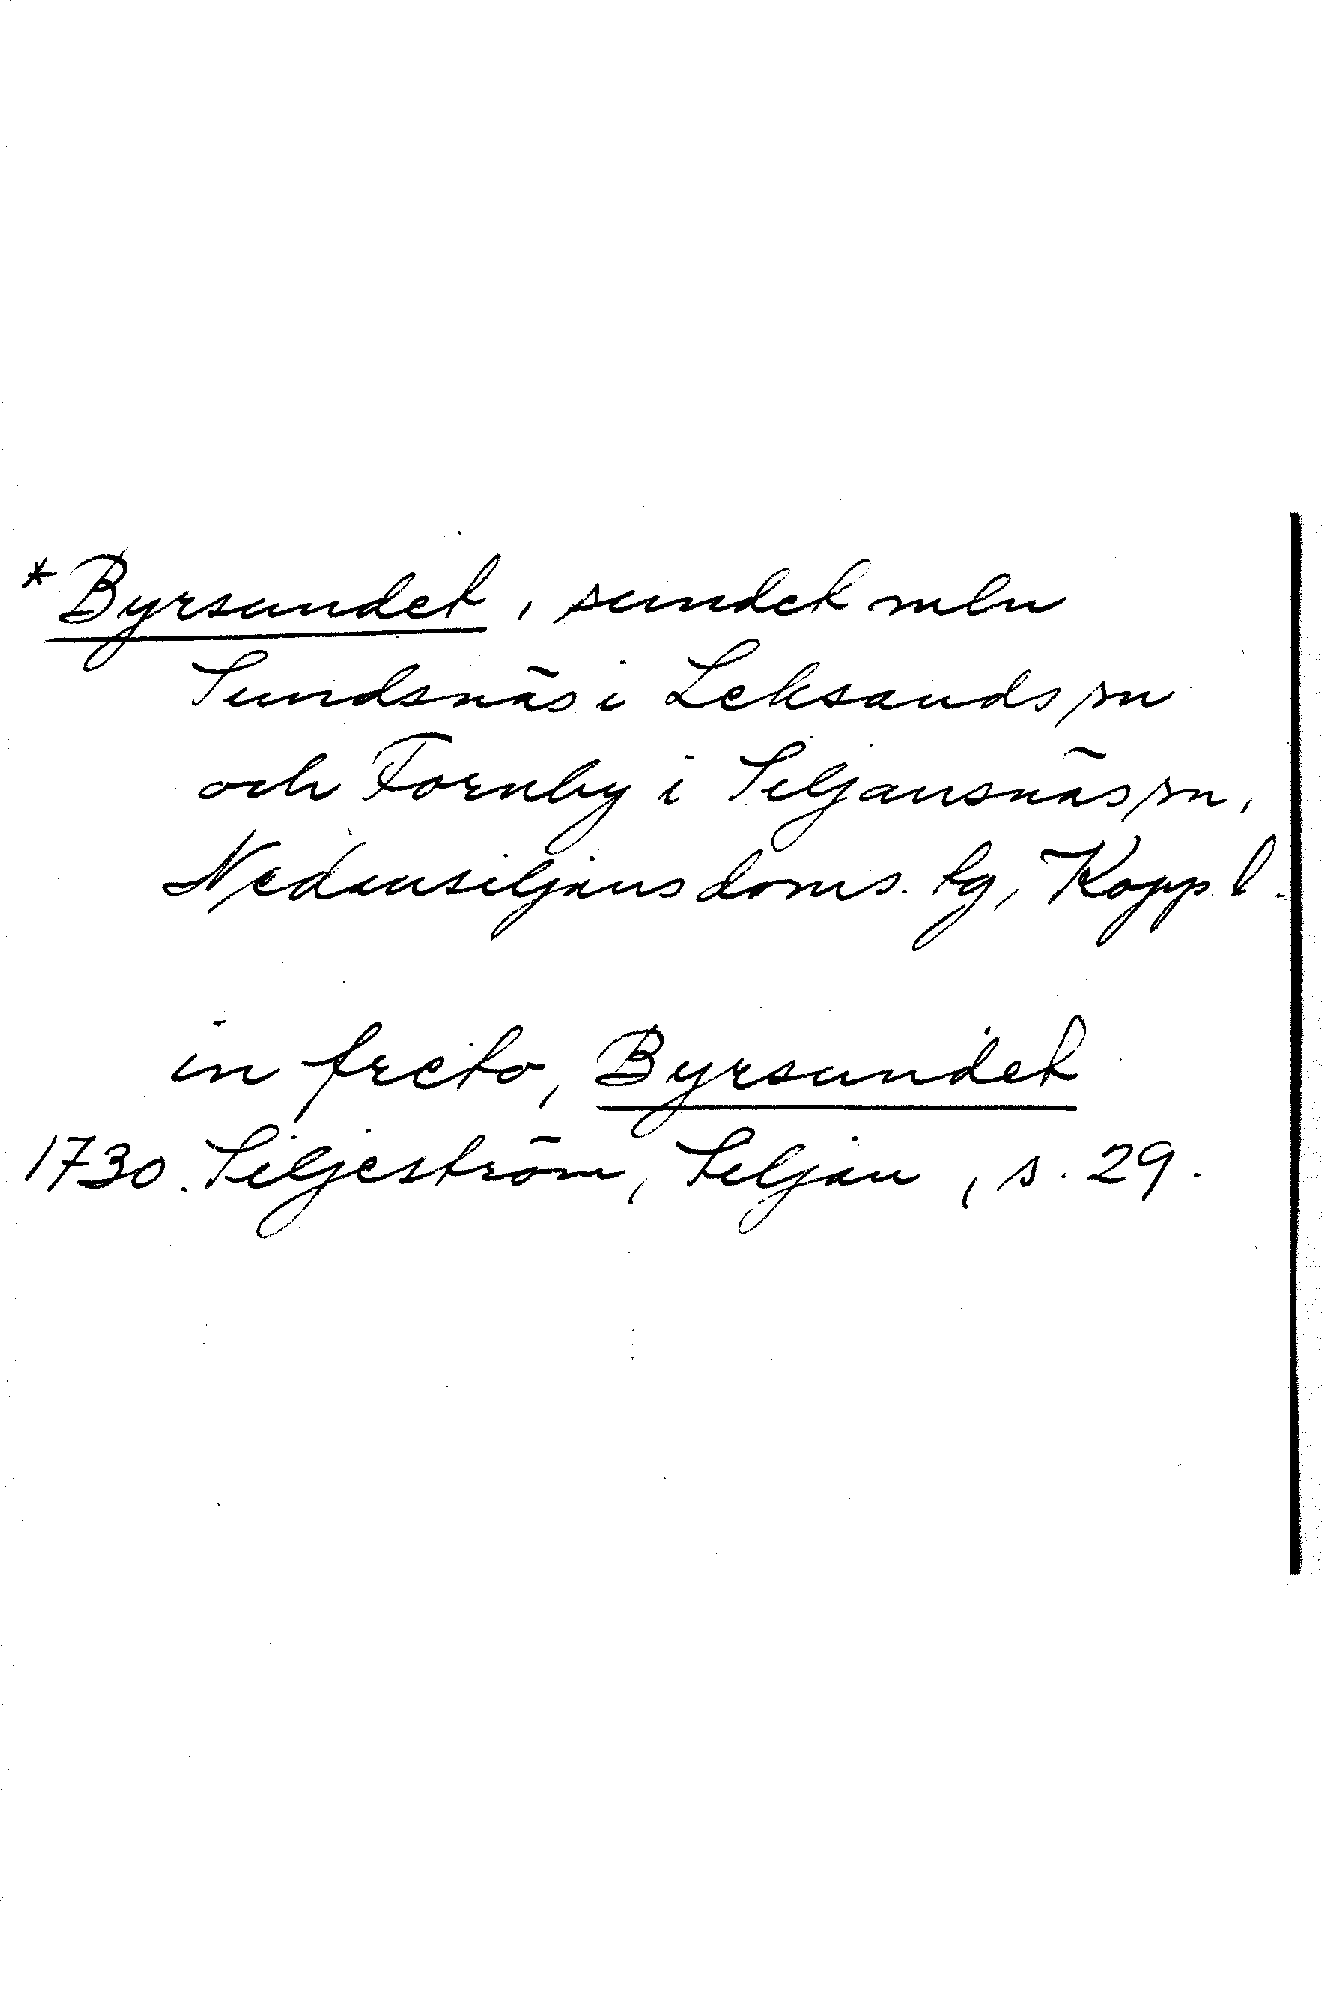 *Byrsundet, sundet mln
Sundsnäs i Leksands sn
och Fornby i Siljansnäs sn,
Nedansiljans doms. tg, Kopp. l.
in freto, Byrsundet
1730. Siljeström, Siljan, s. 29.